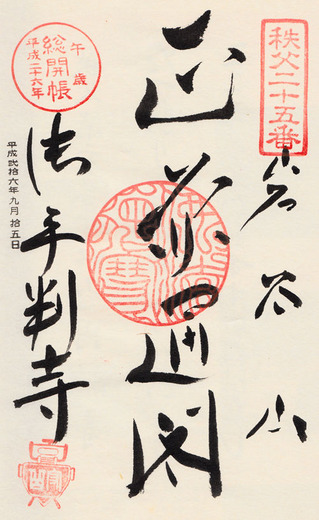 秩父二十五番
岩谷山
円通閣
午歳
総開帳
平成二十六年
御手判寺
平成貳拾六年九月拾五日